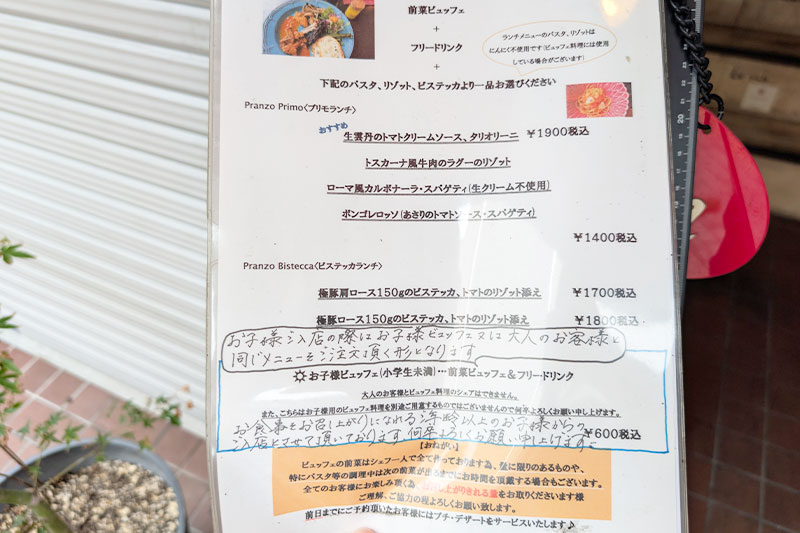 前菜ビュッフェ
+
フリードリンク
+
ランチメニューのパスタ、リゾットは
にんにく不使用です(ビュッフェ料理には使用
している場合がございます)
下記のパスタ、リゾット、ビステッカより一品お選びください
Pranzo Primo〈プリモランチ〉
おすすめ
生雲丹のトマトクリームソース、タリオリーニ ¥1900税込
トスカーナ風牛肉のラグーのリゾット
ローマ風カルボナーラ・スパゲティ(生クリーム不使用)
ボンゴレロッソ(あさりのトマトソース・スパゲティ)
¥1400税込
Pranzo Bistecca〈ビステッカランチ〉
極豚肩ロース150gのビステッカ、トマトのリゾット添え ¥1700税込
極豚ロース150gのビステッカ、トマトのリゾット添え ¥1800税込
お子様ご入店の際はお子様ビュッフェ又は大人のお客様と
同じメニューをご注文頂く形となります
お子様ビュッフェ(小学生未満)…前菜ビュッフェ&フリードリンク
大人のお客様とビュッフェ料理のシェアはできません。
また、こちらはお子様用のビュッフェ料理を別途ご用意するものではございませんので何卒よろしくお願い申し上げます。
お食事をお召し上がりになれる
以上のお子様から
ご入店とさせて頂いております。何卒よろしくお願い申し上げます。
¥600税込
【おねがい】
ビュッフェの前菜はシェフ一人で全て作っております為、量に限りのあるものや、
特にパスタ等の調理中は次の前菜が出るまでにお時間を頂戴する場合もございます。
全てのお客様にお楽しみ頂く為
上がりきれる量をお取りくださいます様
ご理解、ご協力の程よろしくお願い致します。
前日までにご予約頂いたお客様にはプチ・デザートをサービスいたします♪